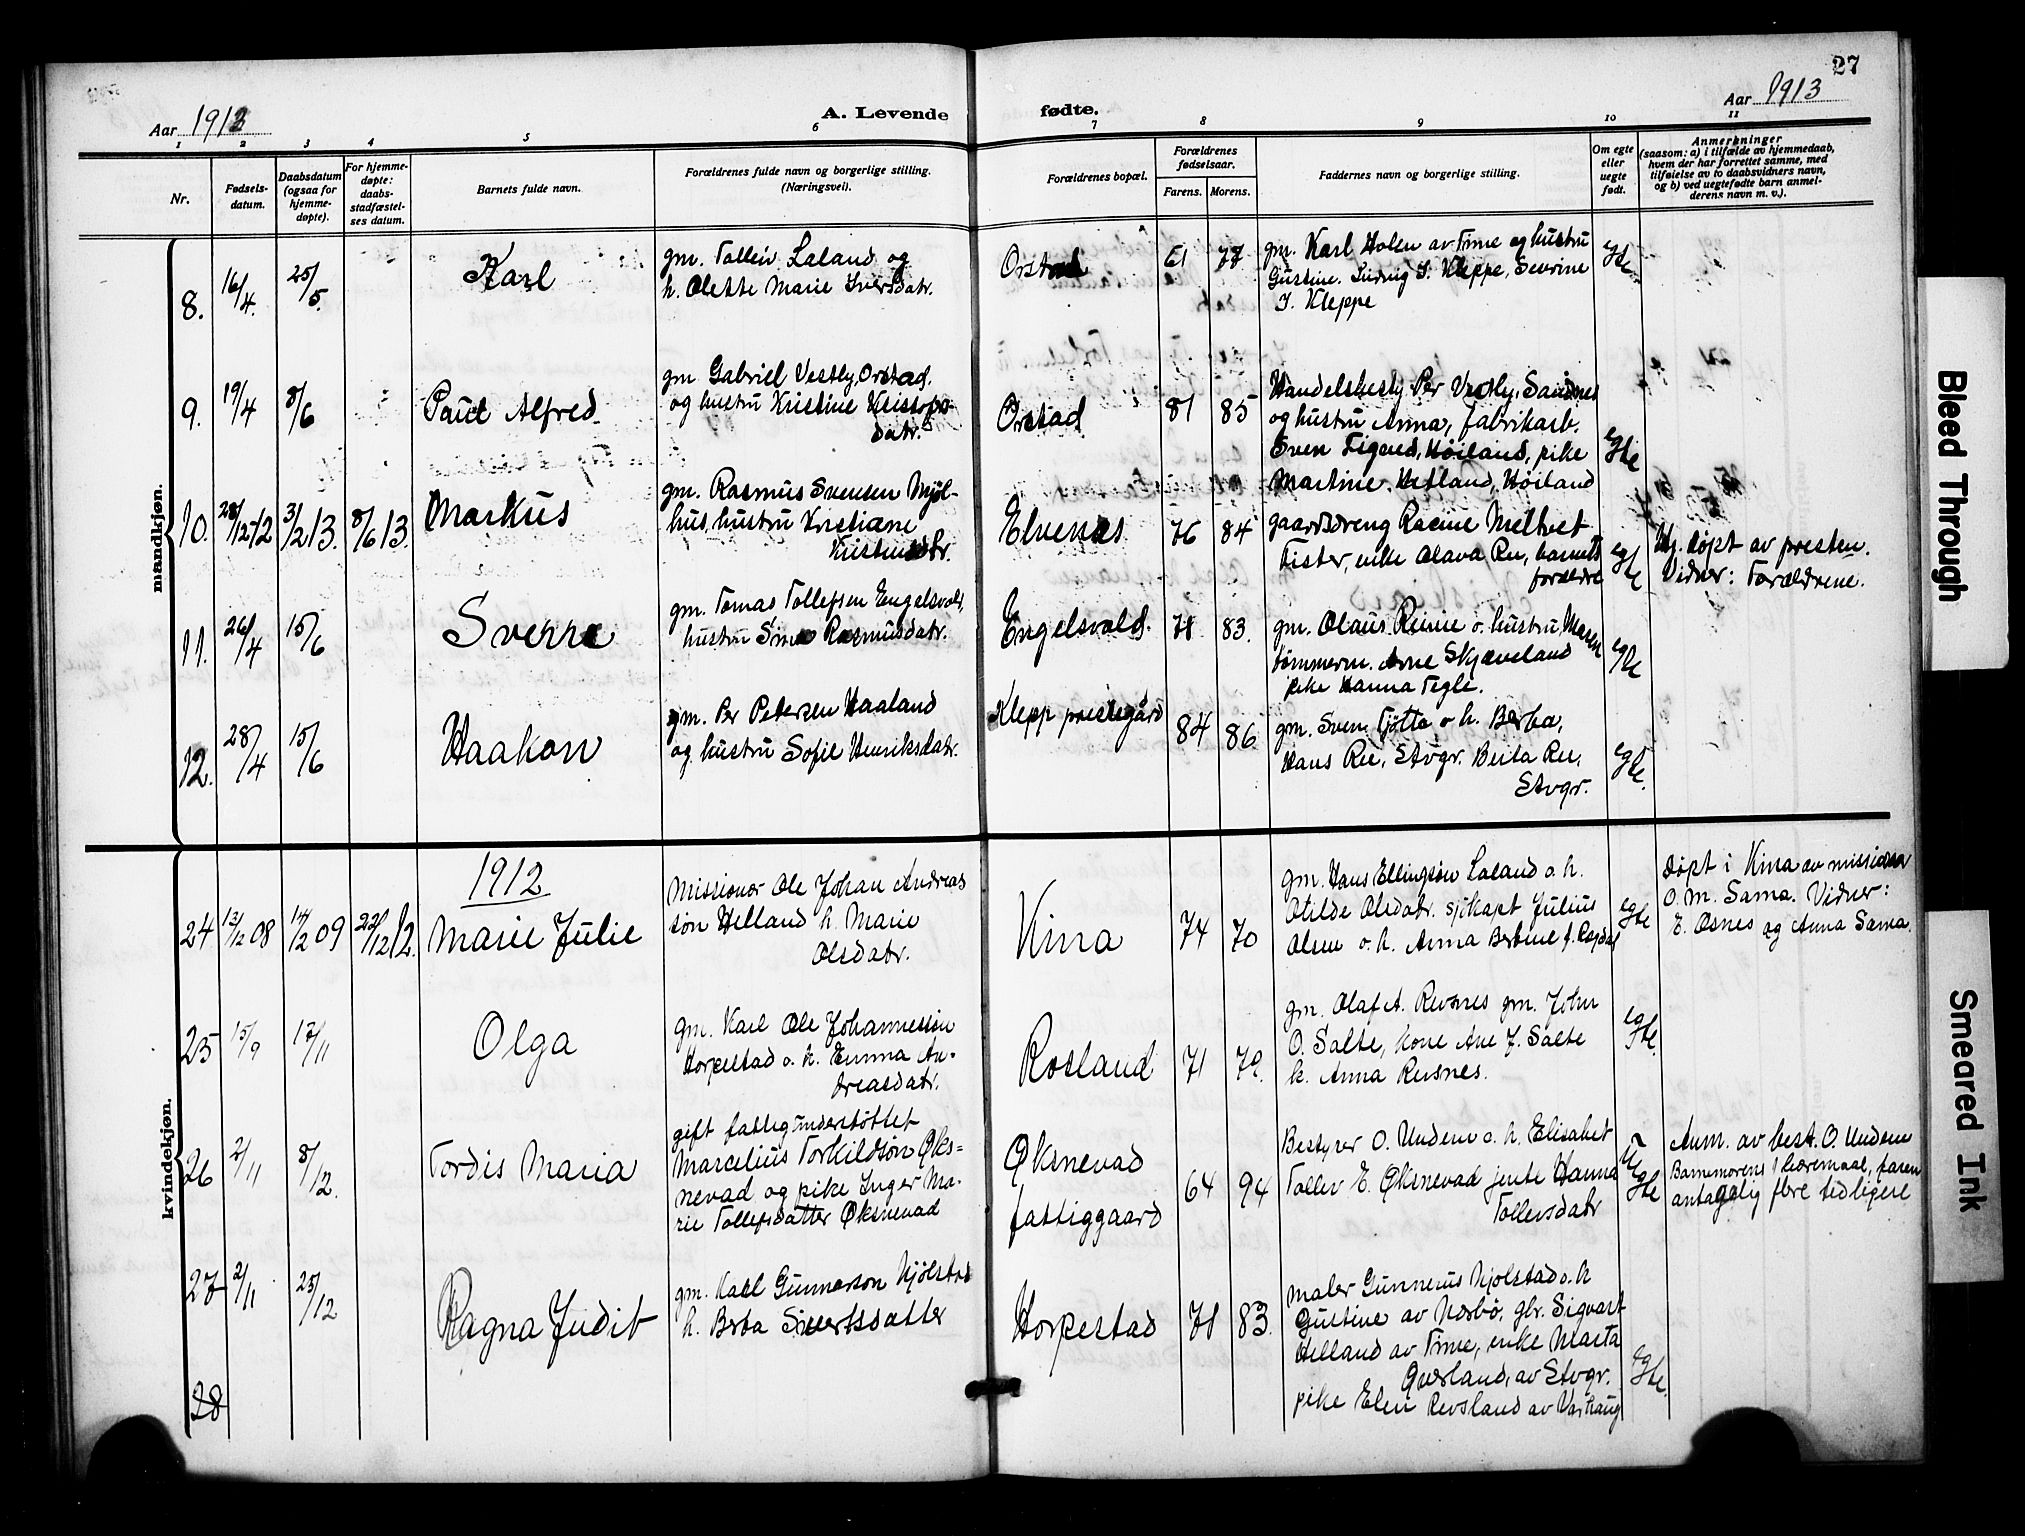 27
Aar 1913
A. Levende fødte.
Aar 1913
1 2 3 4 5 6 7 8 9 10 11
Nr.
Fødsels-
datum.
Daabsdatum
(ogsaa for
hjemme-
døpte).
For hjemme-
døpte:
daabs-
stadfæstel-
ses datum.
Barnets fulde navn.
Forældrenes fulde navn og borgerlige stilling.
(Næringsvei).
Forældrenes bopæl.
Forældrenes
fødselsaar.
Farens. Morens.
Faddernes navn og borgerlige stilling.
Om egte
eller
uegte
født.
Anmerkninger
(saasom: a) i tilfælde av hjemmedaab,
hvem der har forrettet samme, med
tilføielse av to daabsvidners navn,
og b) ved uegtefødte barn anmel-
derens navn m. v.).
mandkjøn.
8. 16/4. 25/5. Karl
gm. Tolleiv Laland og
h. Olette Marie Iversdatr.
Orstad 61 77
gm. Karl Holen av Time og hustru
Gustine. Ludvig I. Kleppe, Sevrine
I. Kleppe
egte
9. 19/4 8/6 Paul Alfred
gm Gabriel Vestly, Orstad.
og hustru Kristine Kristofers-
datr.
Orstad 81 85
Handelsbesty. Per Vestly, Sandnes
og hustru Anna, fabrikarb.
Sven Figved, Høiland, pike
Martine Hetland, Høiland
egte
10. 28/12 12 3/2 13. 8/6 13. Markus
gm. Rasmus Svensen Njøl-
hus, hustru Kristiane
Elvenes 76 84
gaardsdreng Rasmus
enke Olava Re, barnets
forældre
egte
Hj. døpt av presten.
Vidner: Forældrene.
11. 26/4 15/6 Sverre
gm. Tomas Tollefsen Engelsvold,
hustru Sina Rasmusdatr.
Engelsvold. 71 83.
gm. Olaus Reime o. hustru Maren
tømmerm. Arne Skjæveland
pike Hanna Tegle.
egte
12. 28/4 15/6 Haakon
gm. Per Petersen Haaland
og hustru Sofie Henriksdatr.
Klepp prestegård 84 86
gm. Sven Tjøtta o h. Berta,
Hans Re, Stvgr. Berta Re,
Stvgr.
egte.
kvindekjøn.
1912
24 12/12 08 14/2 09 22/12 12. Marie Julie
Missionær Ole Johan Andreas
søn Helland h. Marie
Olsdatr.
Kina 74 70
gm. Hans Ellingsøn Laland o. h.
Otilde Olsdatr. sjøkapt Julius
Olsen o. h. Anna Bertine f. Rosdal
egte
døpt i Kina av missionær
O. M. Sama. Vidner:
E. Osnes og Anna Sama.
25 15/9 17/11 Olga
gm. Karl Ole Johannessøn
Horpestad o. h. Emma An-
dreasdatr.
Rosland 71 79.
gm. Olaf A. Revsnes gm. John
O. Salte, kone Ane J. Salte
k. Anna Revsnes.
egte.
26 2/11 8/12. Tordis Maria
gift fattigunderstøttet
Marcelius Torkildsøn Øks-
nevad og pike Inger Ma-
rie Tollefsdatter Øksnevad
Øksnevad
fattiggaard
64 94
Bestyrer O. Undem o. h. Elisabet
Tollev E. Øksnevad jente Hanna
Tollevsdatr
U
egte
Anm. av best. O. Undem
Barnemorens 1 leiermaal, faren
antagelig flere tidligere
27 2/11 25/12 Ragna Judit
gm. Karl Gunnarson Njølstad
h. Berta Sivertsdatter
Horpestad 71 83.
maler Gunnerius Njølstad o. h
Gustine av Nærbø, gbr. Sigvart
Helland av Time, enke Marta
Qværland, av Stvgr.
pike Elen Revsland av Varhaug
egte.
28
Bleed Through
Smeared Ink